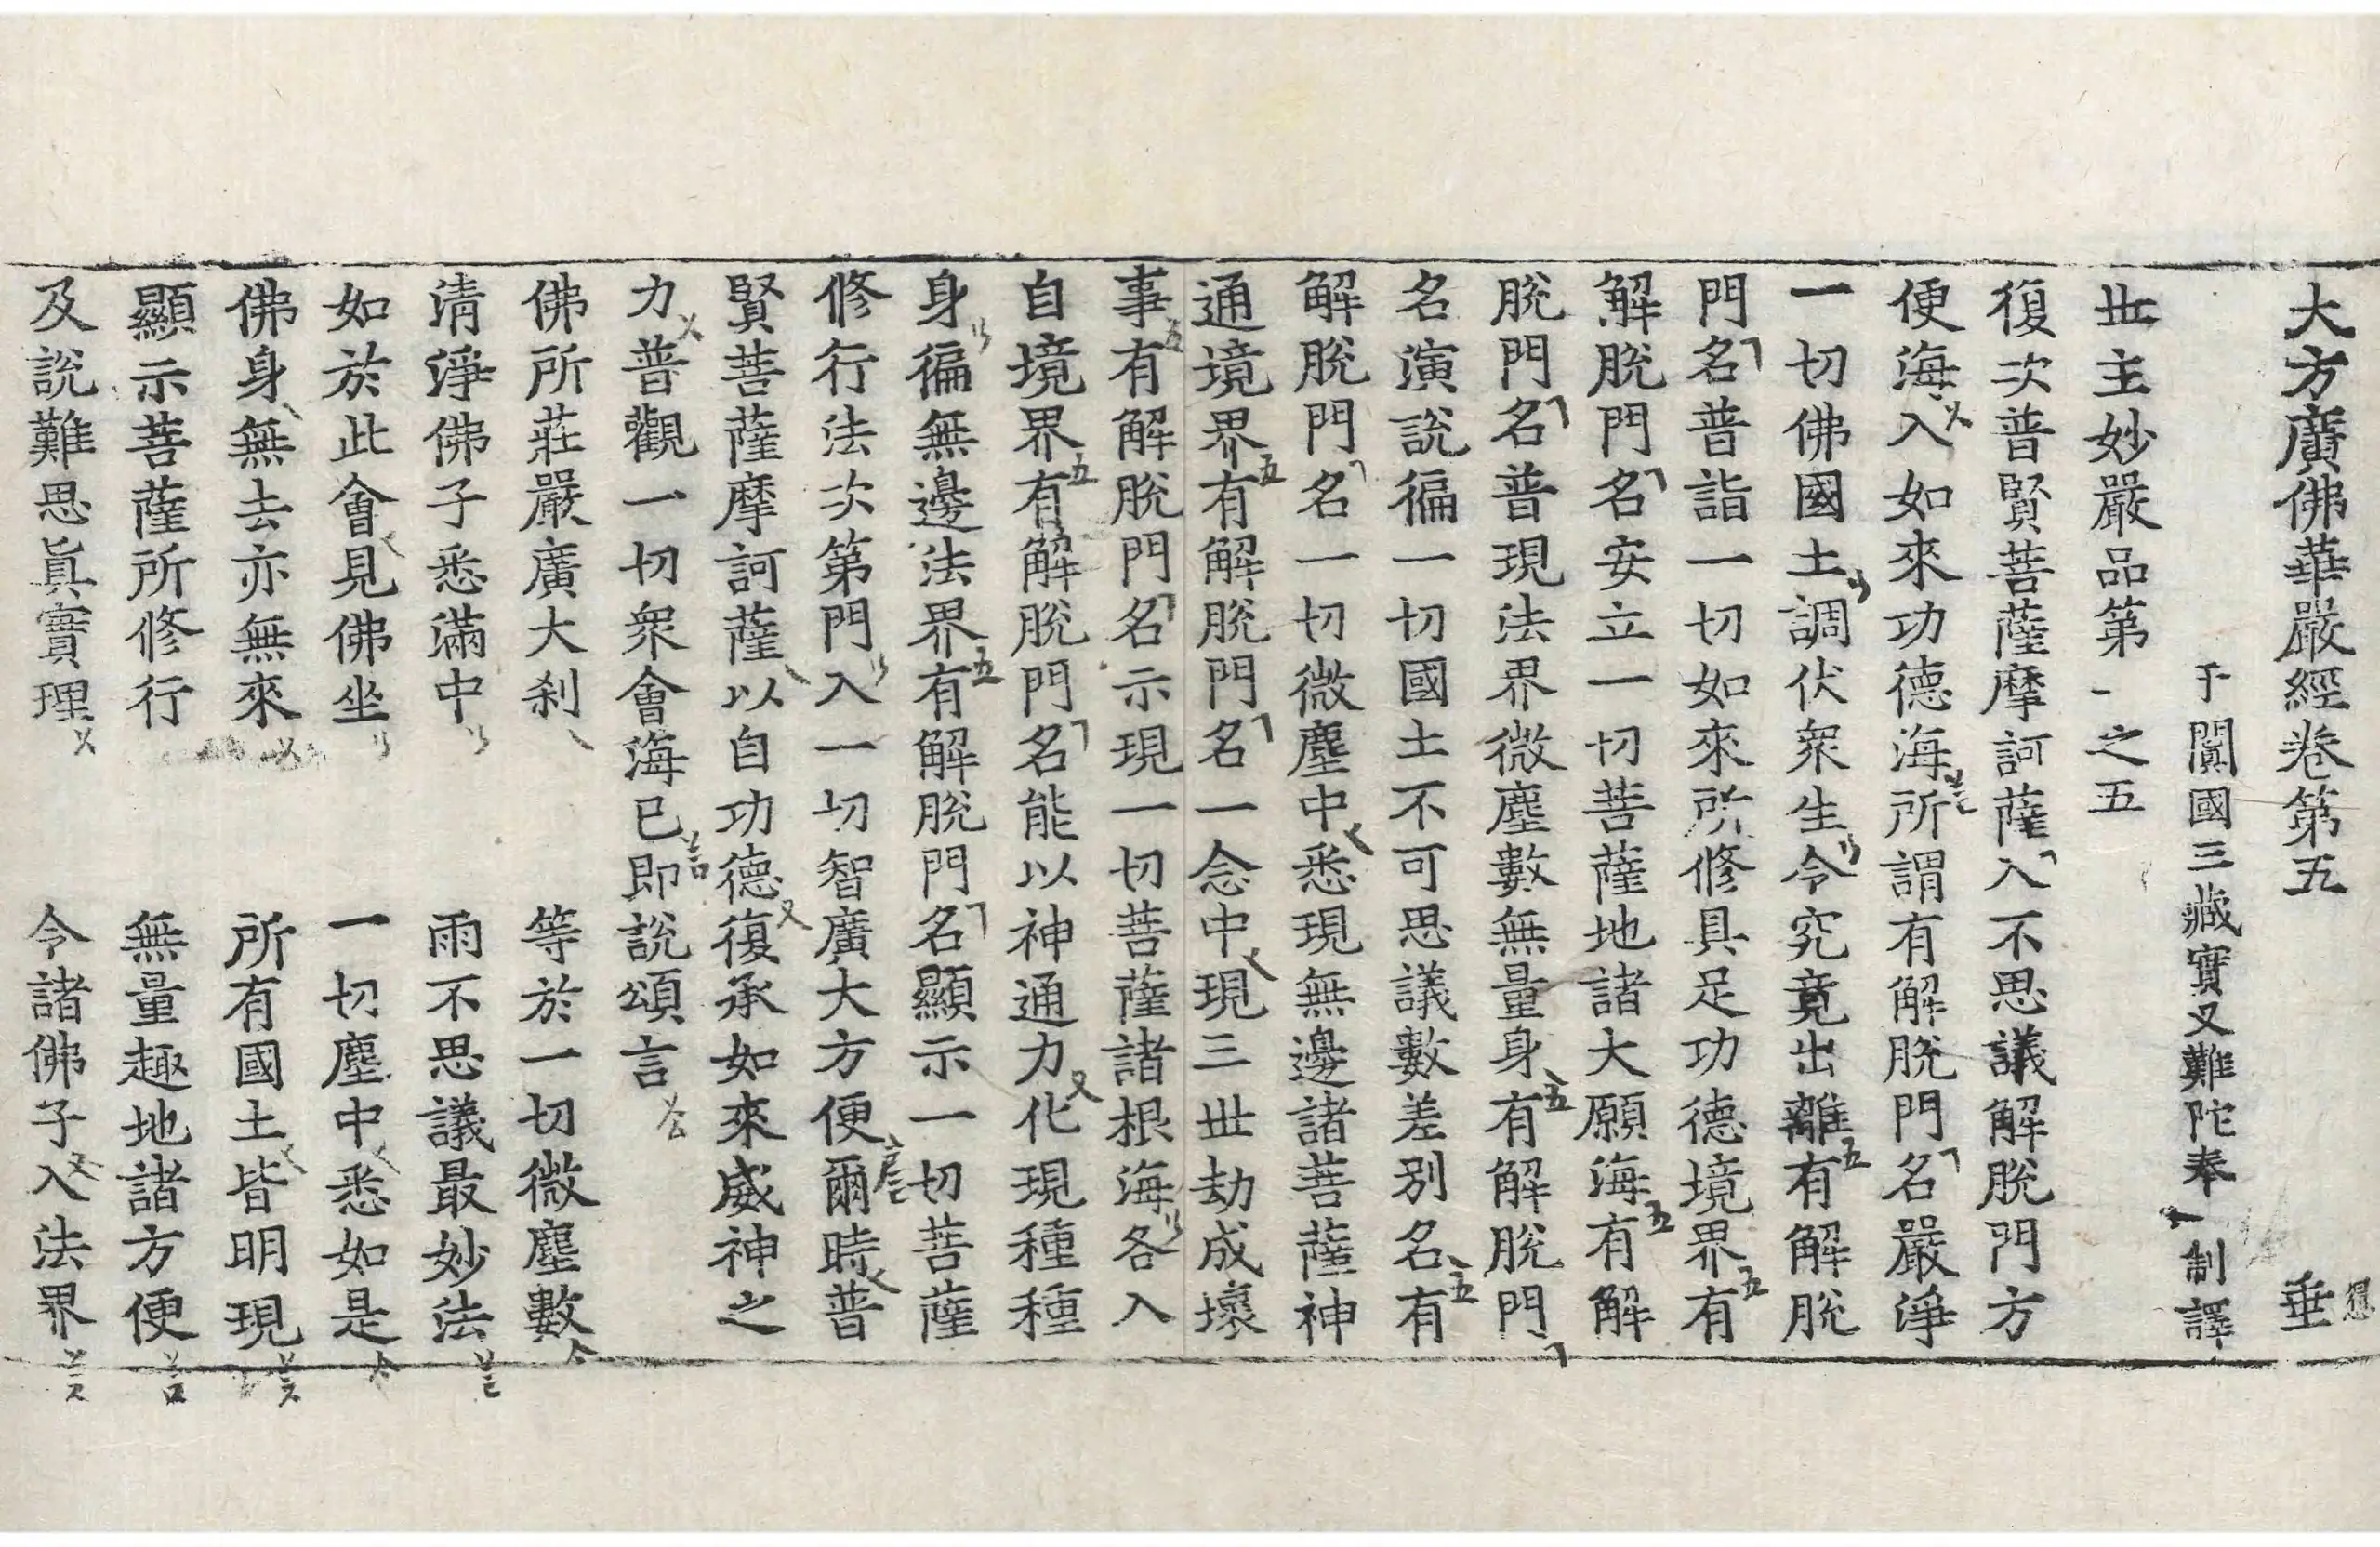 大方廣佛華嚴經卷第五　垂
于闐國三藏實叉難陀奉　制譯
世主妙嚴品第一之五
復次普賢菩薩摩訶薩入不思議解脫門方
便海入如來功德海所謂有解脫門名嚴淨
一切佛國土調伏眾生令究竟出離有解脫
門名普詣一切如來所修具足功德境界有
解脫門名安立一切菩薩地諸大願海有解
脫門名普現法界微塵數無量身有解脫門
名演說徧一切國土不可思議數差別名有
解脫門名一切微塵中悉現無邊諸菩薩神
通境界有解脫門名一念中現三世劫成壞
事有解脫門名示現一切菩薩諸根海各入
自境界有解脫門名能以神通力化現種種
身徧無邊法界有解脫門名顯示一切菩薩
修行法次第門入一切智廣大方便爾時普
賢菩薩摩訶薩以自功德復承如來威神之
力普觀一切眾會海已即說頌言
佛所莊嚴廣大刹　等於一切微塵數
清淨佛子悉滿中　雨不思議最妙法
如於此會見佛坐　一切塵中悉如是
佛身無去亦無來　所有國土皆明現
顯示菩薩所修行　無量趣地諸方便
及說難思真實理　令諸佛子入法界